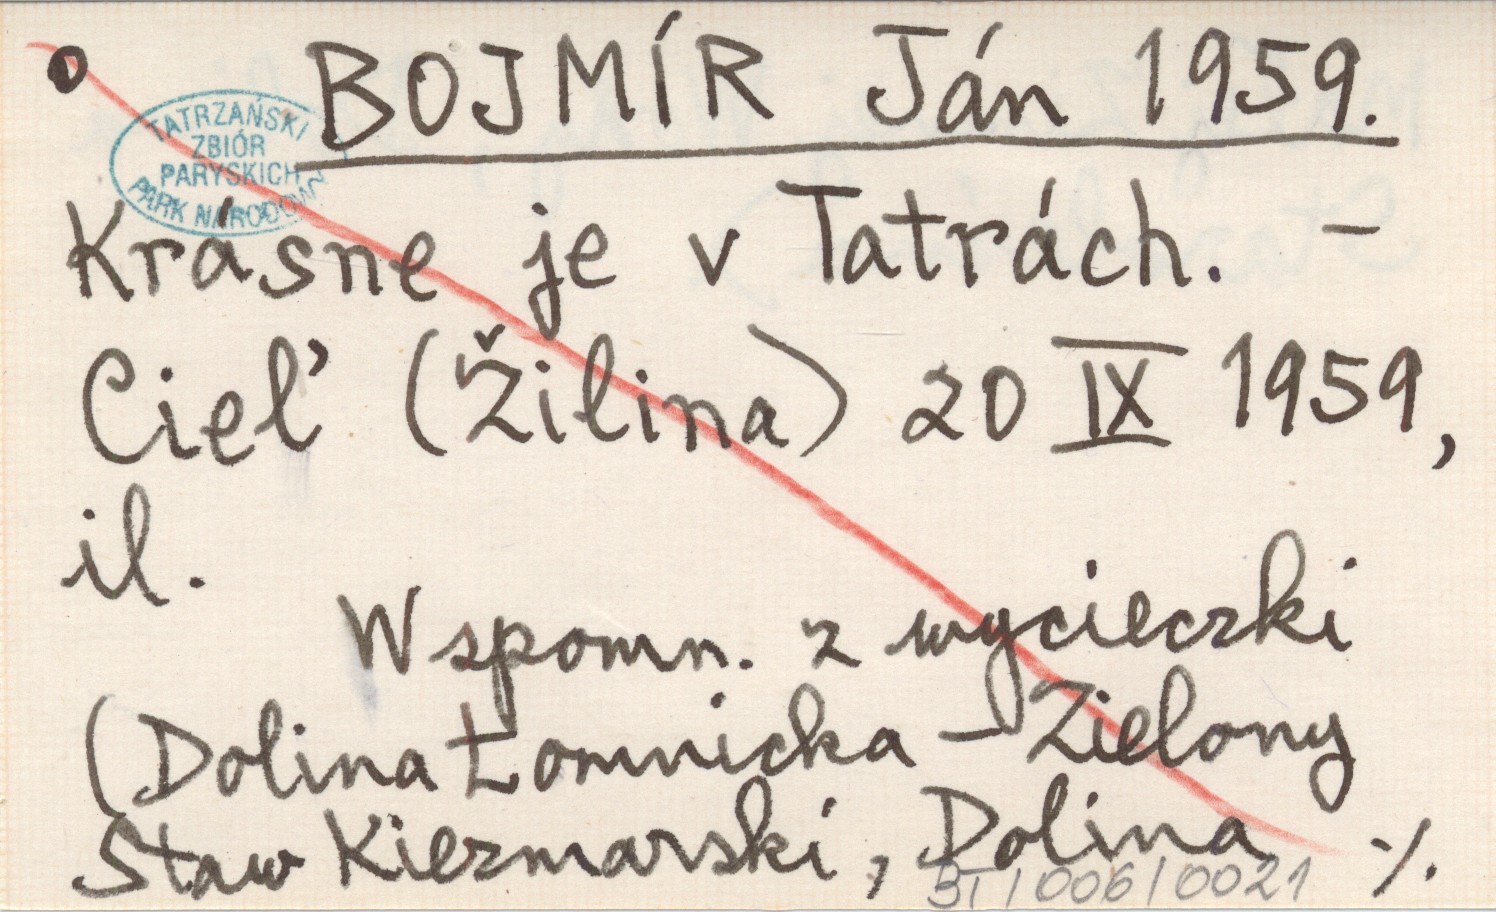 BOJMÍR Ján 1959.
TATRZAŃSKI
ZBIÓR
PARYSKICH
PARK NARODOWY
Krásne je v Tatrách. –
Cieľ (Žilina) 20 IX 1959,
il.
Wspomn. z wycieczki
(Dolina Łomnicka – Zielony
Staw Kiezmarski, Dolina ./.
BT/006/0021